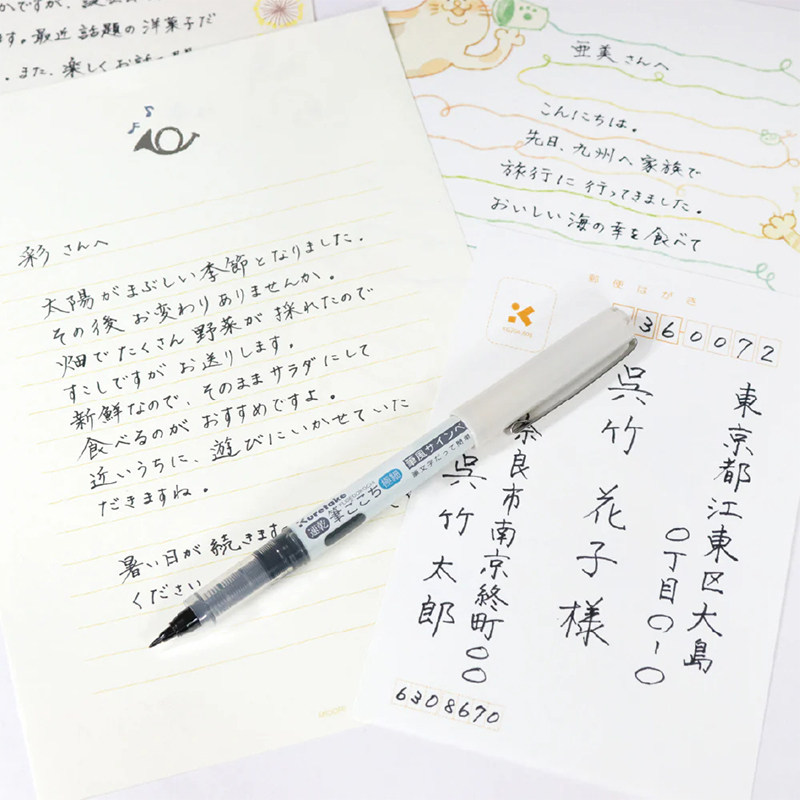 かですが、
ます。最近話題の洋菓子だ
、また、楽しくお
彩さんへ
太陽がまぶしい季節となりました。
その後お変わりありませんか。
畑でたくさん野菜が採れたので
すこしですがお送りします。
新鮮なので、そのままサラダにして
食べるのがおすすめですよ。
近いうちに、遊びにいかせていた
だきますね。
暑い日が続きます
ください
亜美さんへ
こんにちは。
先日、九州へ家族で
旅行に行ってきました。
おいしい海の幸を食べて
郵便はがき
360072
東京都江東区大島
〇丁目〇-〇
呉竹 花子様
奈良市南京終町〇〇
呉竹 太郎
6308670
Kuretake
速乾 筆ごこち 極細
筆風サインペ